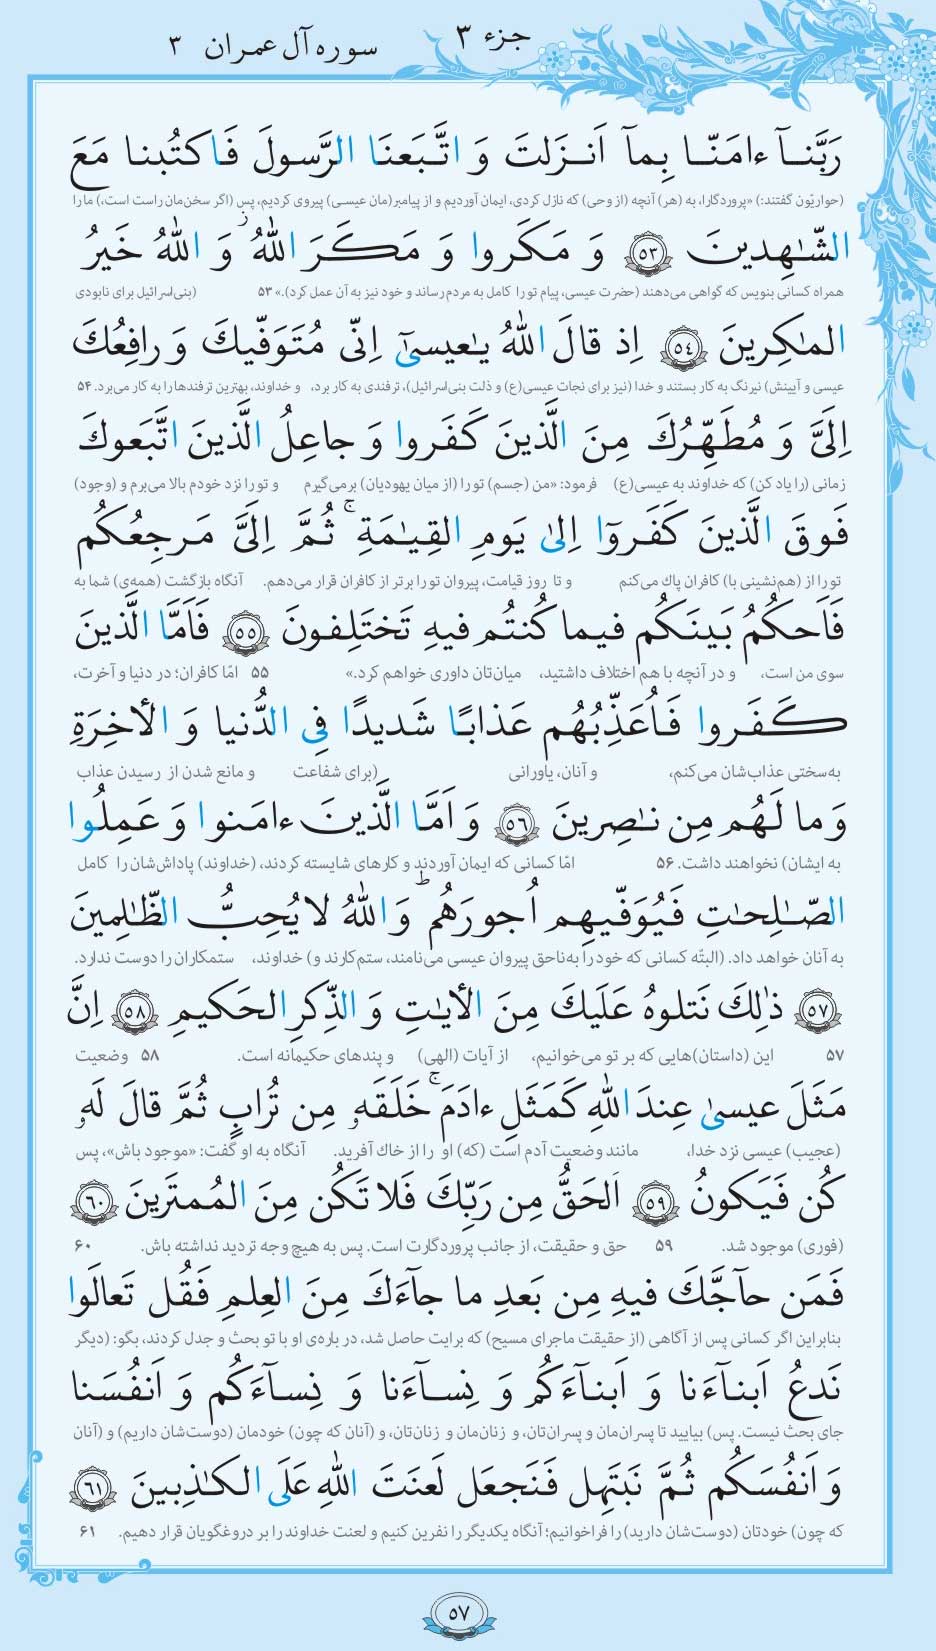 جزء ۳
سوره آل عمران ۳
رَبَّنآ ءامَنّا بِمآ اَنزَلتَ وَ اتَّبَعنَا الرَّسولَ فَاکتُبنا مَعَ
(حواریّون گفتند:) «پروردگارا، به (هر) آنچه (از وحی) که نازل کردی، ایمان آوردیم و از پیامبر(مان عیسی) پیروی کردیم، پس (اگر سخن‌مان راست است،) ما را
الشّٰهِدینَ ﴿۵۳﴾ وَ مَکَروا وَ مَکَرَ اللهُ ز وَ اللهُ خَیرُ
همراه کسانی بنویس که گواهی می‌دهند (حضرت عیسی، پیام تو را کامل به مردم رساند و خود نیز به آن عمل کرد).» ۵۳ (بنی‌اسرائیل برای نابودی
الماٰکِرینَ ﴿۵۴﴾ اِذ قالَ اللهُ یٰعیسیٰٓ اِنّی مُتَوَفّیکَ وَ رافِعُکَ
عیسی و آیینش) نیرنگ به کار بستند و خدا (نیز برای نجات عیسی(ع) و ذلت بنی‌اسرائیل)، ترفندی به کار برد، و خداوند، بهترین ترفندها را به کار می‌برد. ۵۴
اِلَیَّ وَ مُطَهِّرُکَ مِنَ الَّذینَ کَفَروا وَ جاعِلُ الَّذینَ اتَّبَعوکَ
زمانی (را یاد کن) که خداوند به عیسی(ع) فرمود: «من (جسم) تو را (از میان یهودیان) برمی‌گیرم و تو را نزد خودم بالا می‌برم و (وجود)
فَوقَ الَّذینَ کَفَروٓا اِلیٰ یَومِ القِیٰمَةِ ۚ ثُمَّ اِلَیَّ مَرجِعُکُم
تو را از (هم‌نشینی با) کافران پاک می‌کنم و تا روز قیامت، پیروان تو را برتر از کافران قرار می‌دهم. آنگاه بازگشت (همه‌ی) شما به
فَاَحکُمُ بَینَکُم فیما کُنتُم فیهِ تَختَلِفونَ ﴿۵۵﴾ فَاَمَّا الَّذینَ
سوی من است، و در آنچه با هم اختلاف داشتید، میان‌تان داوری خواهم کرد.» ۵۵ امّا کافران؛ در دنیا و آخرت،
کَفَروا فَاُعَذِّبُهُم عَذابًا شَدیدًا فِی الدُّنیا وَ الأٰخِرَةِ
به‌سختی عذاب‌شان می‌کنم، و آنان، یاورانی (برای شفاعت و مانع شدن از رسیدن عذاب
وَ ما لَهُم مِن نٰصِرینَ ﴿۵۶﴾ وَ اَمَّا الَّذینَ ءامَنوا وَ عَمِلُوا
به ایشان) نخواهند داشت. ۵۶ امّا کسانی که ایمان آوردند و کارهای شایسته کردند، (خداوند) پاداش‌شان را کامل
الصّٰلِحٰتِ فَیُوَفّیهِم اُجورَهُم ؕ وَ اللهُ لا یُحِبُّ الظّٰلِمینَ
به آنان خواهد داد. (البتّه کسانی که خود را به‌ناحق پیروان عیسی می‌نامند، ستم‌کارند و) خداوند، ستمکاران را دوست ندارد.
﴿۵۷﴾ ذٰلِکَ نَتلوهُ عَلَیکَ مِنَ الأٰیٰتِ وَ الذِّکرِ الحَکیمِ ﴿۵۸﴾ اِنَّ
۵۷ این (داستان)هایی که بر تو می‌خوانیم، از آیات (الهی) و پندهای حکیمانه است. ۵۸ وضعیت
مَثَلَ عیسیٰ عِندَ اللهِ کَمَثَلِ ءادَمَ ۚ خَلَقَهٗ مِن تُرابٍ ثُمَّ قالَ لَهٗ
(عجیب) عیسی نزد خدا، مانند وضعیت آدم است (که) او را از خاک آفرید. آنگاه به او گفت: «موجود باش»، پس
کُن فَیَکونُ ﴿۵۹﴾ اَلحَقُّ مِن رَبِّکَ فَلا تَکُن مِنَ المُمتَرینَ ﴿۶۰﴾
(فوری) موجود شد. ۵۹ حق و حقیقت، از جانب پروردگارت است. پس به هیچ وجه تردید نداشته باش. ۶۰
فَمَن حآجَّکَ فیهِ مِن بَعدِ ما جآءَکَ مِنَ العِلمِ فَقُل تَعالَوا
بنابراین اگر کسانی پس از آگاهی (از حقیقت ماجرای مسیح) که برایت حاصل شد، در باره‌ی او با تو بحث و جدل کردند، بگو: (دیگر
نَدعُ اَبنآءَنا وَ اَبنآءَکُم وَ نِسآءَنا وَ نِسآءَکُم وَ اَنفُسَنا
جای بحث نیست. پس) بیایید تا پسران‌مان و پسران‌تان، و زنان‌مان و زنان‌تان، و (آنان که چون) خودمان (دوست‌شان داریم) و (آنان
وَ اَنفُسَکُم ثُمَّ نَبتَهِل فَنَجعَل لَعنَتَ اللهِ عَلَی الکٰذِبینَ ﴿۶۱﴾
که چون) خودتان (دوست‌شان دارید) را فراخوانیم؛ آنگاه یکدیگر را نفرین کنیم و لعنت خداوند را بر دروغگویان قرار دهیم. ۶۱
۵۷